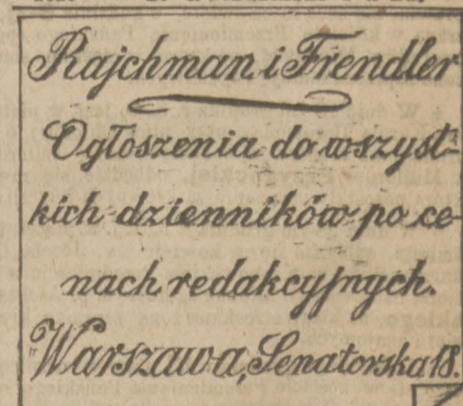 Rajchman i Frendler
Ogłoszenia do wszyst-
kich dzienników po ce-
nach redakcyjnych.
Warszawa, Senatorska 18.